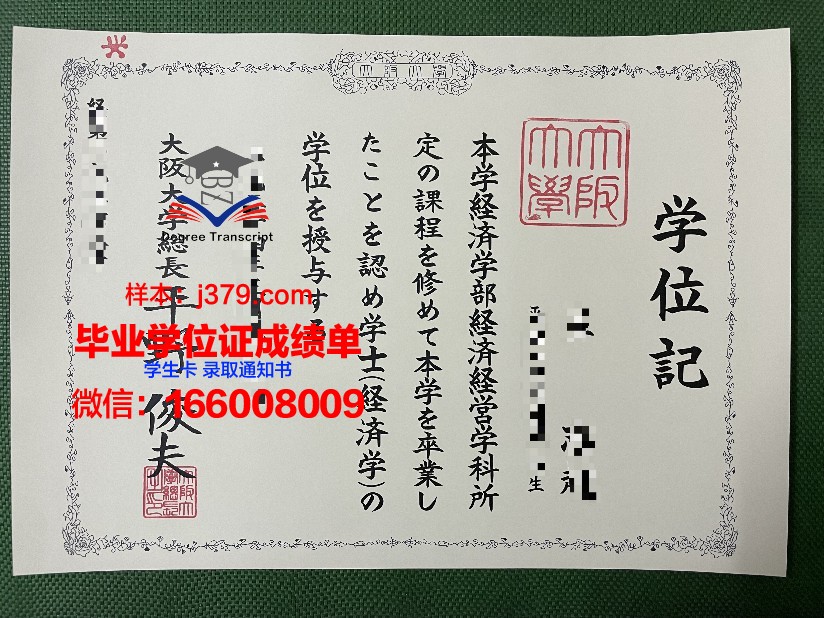 学位記
大阪
大學
生
本学経済学部経済経営学科所
定の課程を修めて本学を卒業し
たことを認め学士(経済学)の
学位を授与する
大阪大学総長
平野俊夫
Degree Transcript
样本：j379.com
毕业学位证成绩单
学生卡 录取通知书
微信：166008009